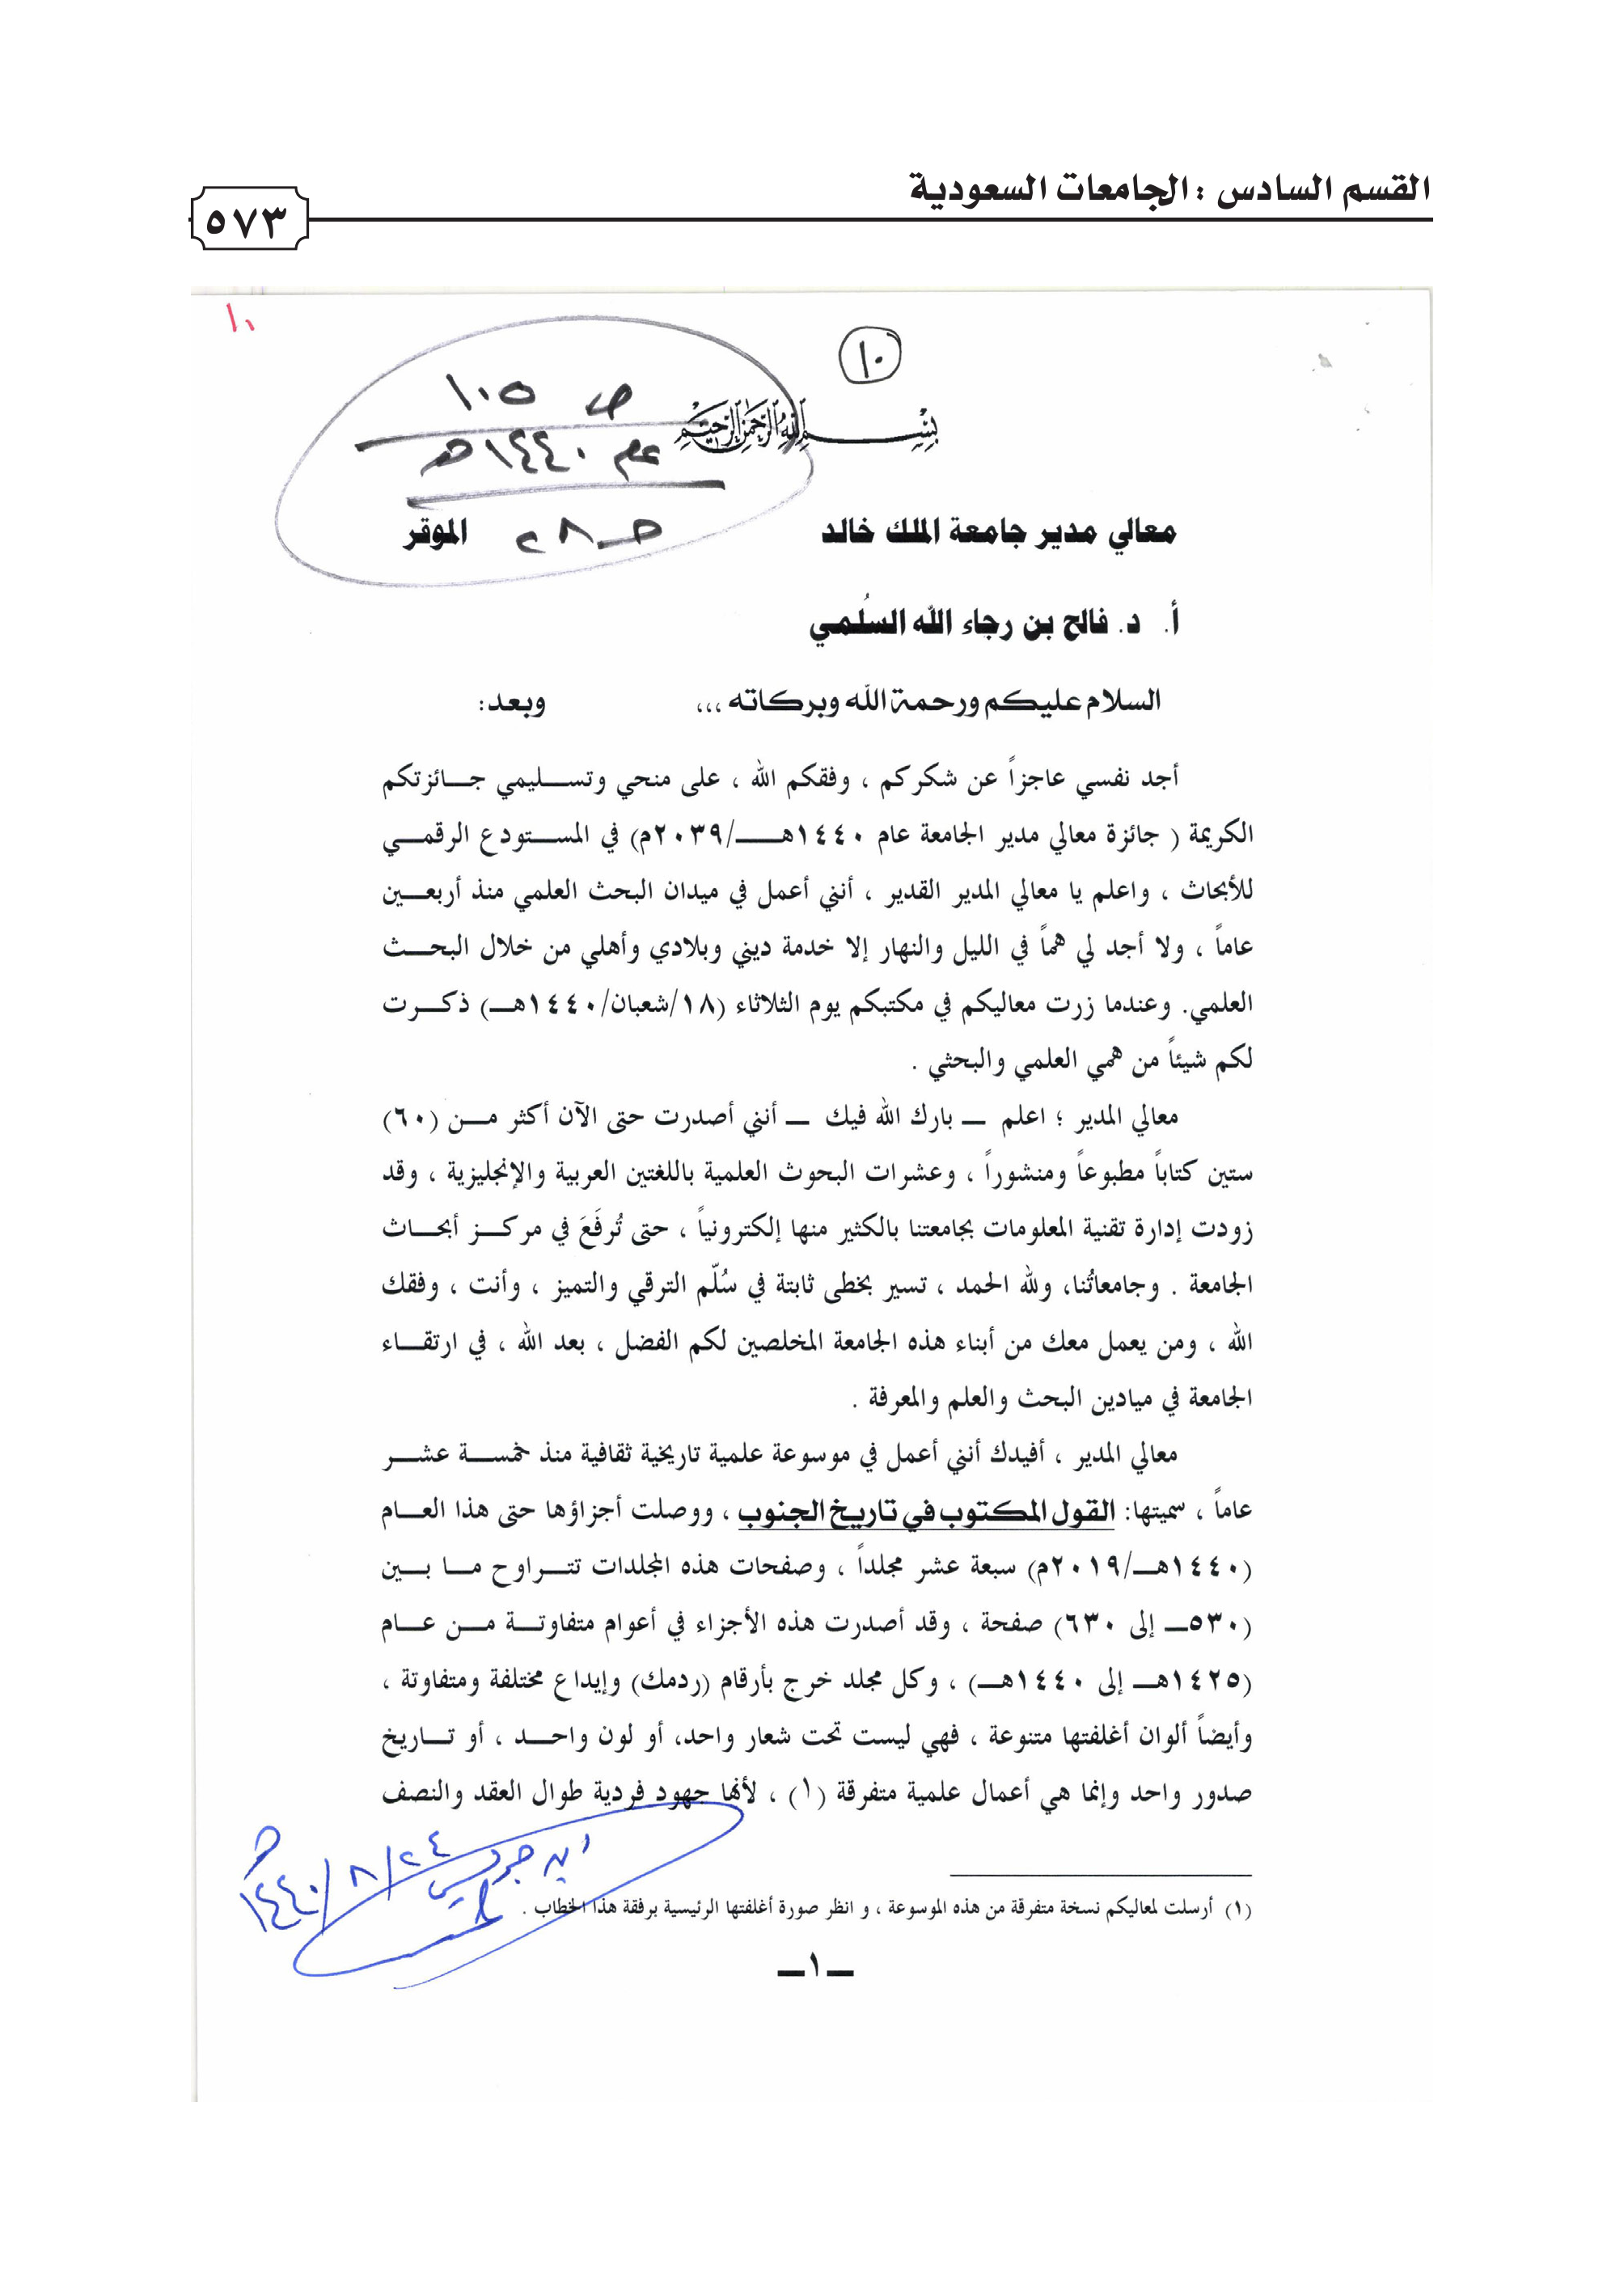 القسم السادس : الجامعات السعودية
٥٧٣
١٠
١٠
ص ١٠٥
عام ١٤٤٠هـ
بسم الله الرحمن الرحيم
معالي مدير جامعة الملك خالد الموقر
حـ ٢٨
أ. د. فالح بن رجاء الله السُلمي
السلام عليكم ورحمة الله وبركاته ،،، وبعد:
أجد نفسي عاجزاً عن شكركم ، وفقكم الله ، على منحي وتسـليمي جـائزتكم
الكريمة ( جائزة معالي مدير الجامعة عام ١٤٤٠هـ/٢٠٣٩م) في المستودع الرقمـي
للأبحاث ، واعلم يا معالي المدير القدير ، أنني أعمل في ميدان البحث العلمي منذ أربعـين
عاماً ، ولا أجد لي هماً في الليل والنهار إلا خدمة ديني وبلادي وأهلي من خلال البحـث
العلمي. وعندما زرت معاليكم في مكتبكم يوم الثلاثاء (١٨/شعبان/١٤٤٠هـ) ذكـرت
لكم شيئاً من همي العلمي والبحثي .
معالي المدير ؛ اعلم ـ بارك الله فيك ـ أنني أصدرت حتى الآن أكثر مـن (٦٠)
ستين كتاباً مطبوعاً ومنشوراً ، وعشرات البحوث العلمية باللغتين العربية والإنجليزية ، وقد
زودت إدارة تقنية المعلومات بجامعتنا بالكثير منها إلكترونياً ، حتى تُرفَعَ في مركـز أبحـاث
الجامعة . وجامعاتُنا، ولله الحمد ، تسير بخطى ثابتة في سُلّم الترقي والتميز ، وأنت ، وفقك
الله ، ومن يعمل معك من أبناء هذه الجامعة المخلصين لكم الفضل ، بعد الله ، في ارتقـاء
الجامعة في ميادين البحث والعلم والمعرفة .
معالي المدير ، أفيدك أنني أعمل في موسوعة علمية تاريخية ثقافية منذ خمسـة عشـر
عاماً ، سميتها: القول المكتوب في تاريخ الجنوب ، ووصلت أجزاؤها حتى هذا العـام
(١٤٤٠هـ/٢٠١٩م) سبعة عشر مجلداً ، وصفحات هذه المجلدات تتـراوح مـا بـين
(٥٣٠ـ إلى ٦٣٠) صفحة ، وقد أصدرت هذه الأجزاء في أعوام متفاوتـة مـن عـام
(١٤٢٥هـ إلى ١٤٤٠هـ) ، وكل مجلد خرج بأرقام (ردمك) وإيداع مختلفة ومتفاوتة ،
وأيضاً ألوان أغلفتها متنوعة ، فهي ليست تحت شعار واحد، أو لون واحـد ، أو تـاريخ
صدور واحد وإنما هي أعمال علمية متفرقة (١) ، لأنها جهود فردية طوال العقد والنصف
ابن جريس
١٤٤٠/٨/٢٤هـ
(١) أرسلت لمعاليكم نسخة متفرقة من هذه الموسوعة ، و انظر صورة أغلفتها الرئيسية برفقة هذا الخطاب .
ـ١ـ